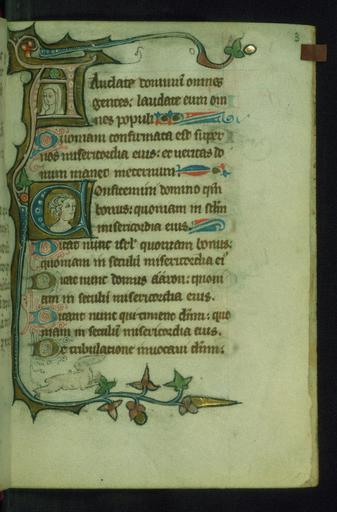 3
Laudate dominum omnes
gentes: laudate eum om
nes populi
Quoniam confirmata est super
nos misericordia eius: et veritas do
mini manet in eternum
Confitemini domino qm̄
bonus: quoniam in sclm̄
misericordia eius.
Dicat nunc isrl' quoniam bonus:
quoniam in seculū misericordia ei'
Dicat nunc domus aaron: quoni
am in seculū misericordia eius.
Dicant nunc qui timent dn̄m: quo
niam in seculū misericordia eius.
De tribulatione inuocaui dn̄m: